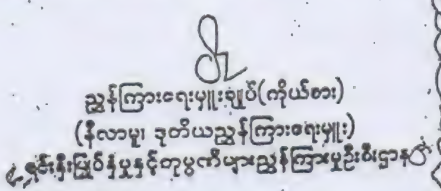 ညွှန်ကြားရေးမှူးချုပ်(ကိုယ်စား)
(နီလာမူ၊ ဒုတိယညွှန်ကြားရေးမှူး)
ရင်းနှီးမြှုပ်နှံမှုနှင့်ကုမ္ပဏီများညွှန်ကြားမှုဦးစီးဌာန